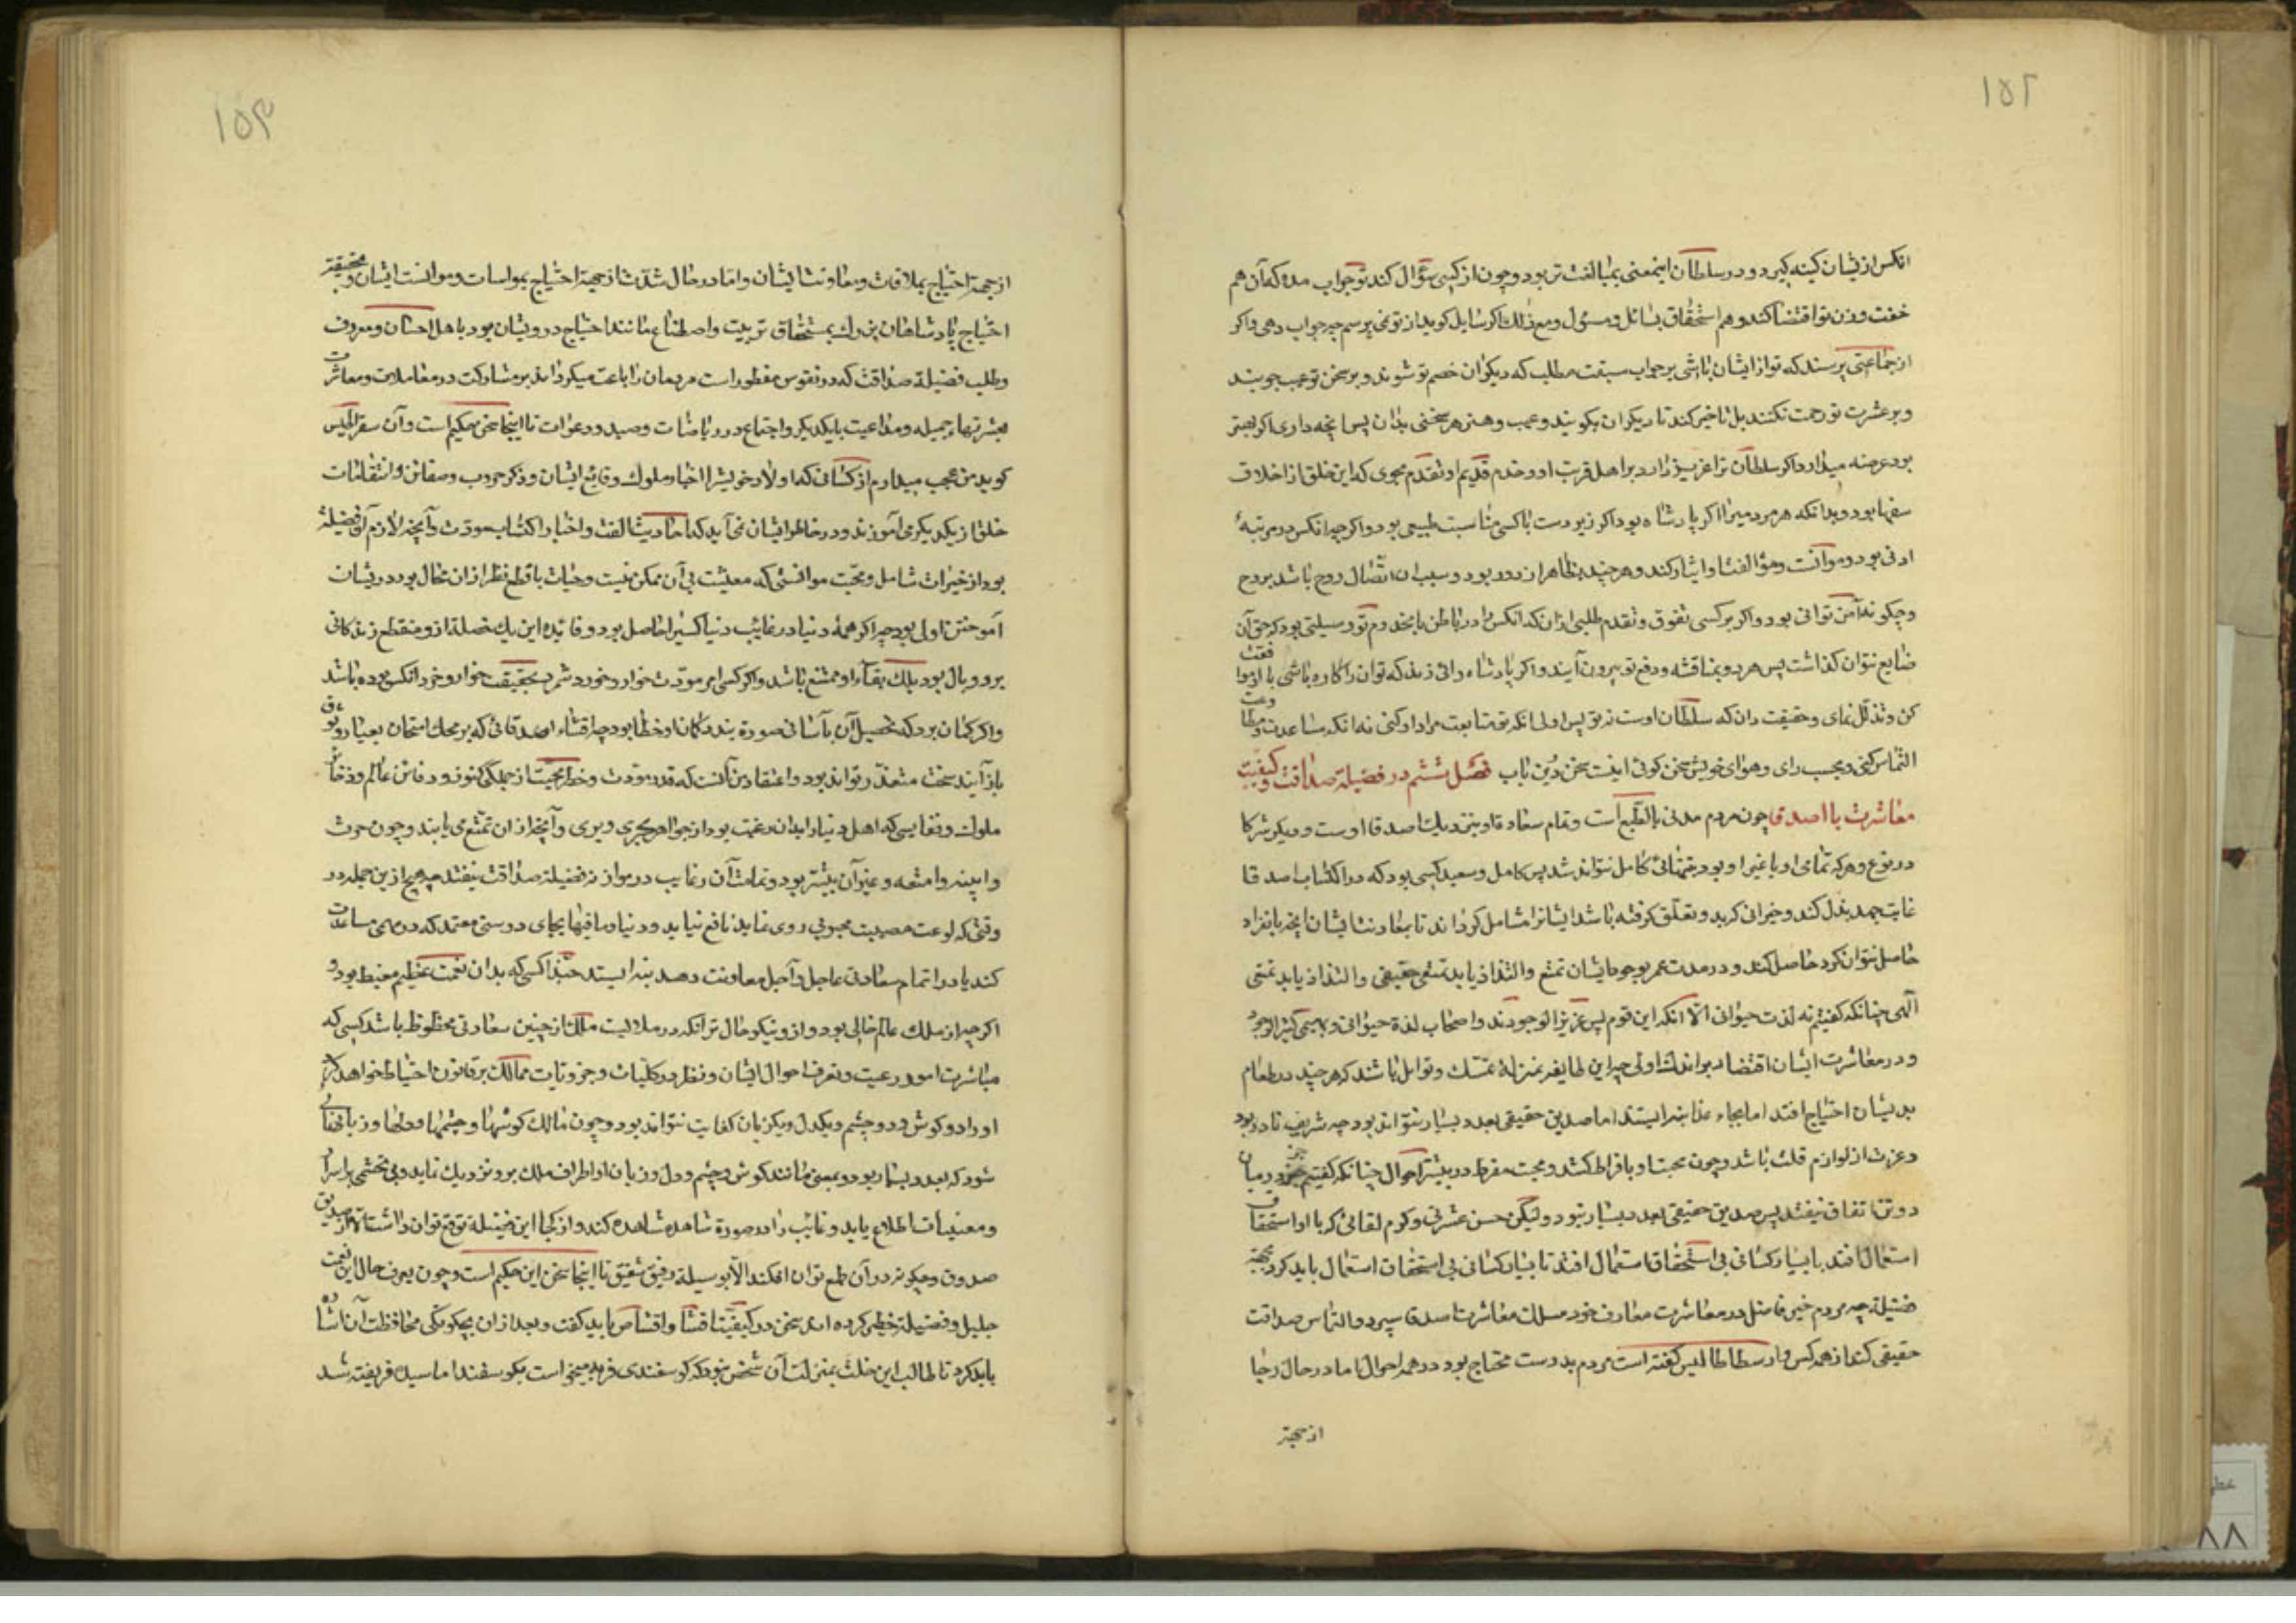 ۱۵۲
انکس ازیشان کینه کیرد و در سلطان اینمعنی بمبالغت تر بود و چون از کسی سؤال کند تو جواب مده که آن هم
خفت وزن تو اقتضا کند و هم استخفاف بسائل و مسؤل ومع ذلک اکر سایل کوید از تو نمی پرسم چه جواب دهی و اکر
از جماعتی پرسند که تو از ایشان باشی بر جواب سبقت مطلب که دیکران خصم تو شوند و بر سخن تو عیب جویند
و بر عثرت تو رحمت نکنند بل تاخیر کند تا دیکران بکویند و عیب و هنر هر سخنی بدان پس آنچه داری اکر بهتر
بود عرضه میدار و اکر سلطان ترا عزیز دارد بر اهل قربت او و خدم قدیم او تقدم مجوی که این خلق از اخلاق
سفها بود و بدانکه هر مرد میرا اکر پادشاه بود اکر زیر دست با کسی مناسبت طبیعی بود و اکر چه انکس در مرتبهٔ
ادنی بود و موانست و مؤالفت او ایثار کند و هر چند بظاهر از و دور بود و سبب ان اتصال روح باشد بروح
و چکونه آمن توانی بود و اکر بر کسی تفوق و تقدم طلبی ازان که انکس را در باطن با مخدوم تو وسیلتی بود که حق آن
ضایع نتوان کذاشت پس هر دو بمناقشه و دفع تو بیرون آیند و اکر پادشاه رائی زند که توان را کاره باشی با او موافقت
کن و تذلل نمای و حقیقت دان که سلطان اوست نه تو پس اولی انکه تو متابعت مراد او کنی نه انکه مساعدت و مطاوعت
التماس کنی و بحسب رای و هوای خویش سخن کوئی اینست سخن درین باب فصل ششم در فضیلة صداقت و کیفیت
معاشرت با اصدقا چون مردم مدنی بالطبع است و تمام سعادة او بنزدیک اصدقا اوست و دیکر شرکا
در نوع و هر که تمامی او با غیر او بود بتنهائی کامل نتواند شد پس کامل و سعید کسی بود که در اکتساب اصدقا
غایت جهد بذل کند و خیراتی که بدو تعلق کرفته باشد ایشانرا شامل کرداند تا بمعاونت ایشان انچه بانفراد
حاصل نتوان کرد حاصل کند و در مدت عمر بوجود ایشان تمتع و التذاذ یابد تمتعی حقیقی و التذاذ یابد تمتعی
الهی چنانکه کفتیم نه لذت حیوانی الا انکه این قوم بس عزیز الوجودند و اصحاب لذة حیوانی و بهیمی کثیر الوجود
و در معاشرت ایشان اقتصار بر اندک اولی چه این طایفه بمنزله نمک و توابل باشند که هر چند در طعام
بدیشان احتیاج افتد اما بجاء غذا نه ایستند اما صدیق حقیقی بعدد بسیار نتواند بود چه شریف نادر بود
و عزت از لوازم قلت باشد و چون محبت او بافراط کشد و محبت مفرط در بیشتر احوال چنانکه کفتیم جز در میان
دو تن اتفاق نیفتد پس صدیق حقیقی بعدد بسیار نبود ولیکن حسن عشرتی و کرم لقائی که با او استحقاق
استعمال افتد با بسیار کسانی بی استحقاق استعمال افتد تا بسیار کسانی بی استحقاق استعمال باید کرد بجهة
فضیلة چه مردم خیر فاضل در معاشرت معارف خود مسلک معاشرت اصدقا سپرد و التماس صداقت
حقیقی کند از همه کس و ارسطاطالیس کفته است مردم بدوست محتاج بود در همه احوال اما در حال رخا
از جهة
۱۵۳
از جهة احتیاج بملاقات و معاونت ایشان و اما در حال شدت از جهة احتیاج بمواسات و موانست ایشان و بحقیقة
احتیاج پادشاهان بزرک بمستحقاق تربیت و اصطناع مانند احتیاج درویشان بود باهل احسان و معروف
و طلب فضیلة صداقت که در نفوس مفطور است مردمان را باعث میکرداند بر مشارکت در معاملات و معاشرت
بعشرتهاء جمیله و مداعبت با یکدیکر و اجتماع در ریاضات و صید و دعوات تا اینجا سخن حکیم است و آن سقراطیس
کوید من عجب میدارم از کسانی که اولاد خویشرا اخبار ملوک و وقایع ایشان و ذکر حروب و ضغائن و انتقامات
خلق از یکدیکر می آموزند و در خاطر ایشان نمی آید که احادیث الفت و اخبار اکتساب مودت و آنچه لازم آن فضیلة
بود از خیرات شامل و محبت موانستی که معیشت بی آن ممکن نیست و حیات با قطع نظر از ان محال بود در یشان
آموختن اولی بود چه اکر همهٔ دنیا و رغایب دنیا کسیرا حاصل بود و فایدهٔ این یک خصلة از و منقطع زندکانی
برو وبال بود بلک بقاء او ممتنع باشد و اکر کسی امر مودت خوار و خورد شمرد بحقیقت خوار و خرد انکس بوده باشد
و اکر کمان برد که تحصیل آن بآسانی صورة بندد کمان او خطا بود چه اقتناء اصدقائی که بر محک امتحان بعیار وثوق
باز آیند سخت متعذر تواند بود و اعتقاد من آنست که قدر مودت و خطر محبت از جملکی کنوز و دفاین عالم و ذخائر
ملوک و نفایسی که اهل دنیا را بدان رغبت بود از جواهر بحری و بری و آنچه از ان تمتع می یابند و چون حرث
و ابنیه و امتعه و غیر آن بیشتر بود و تمامت آن رغایب در موازنه فضیلة صداقت نیفتد چه هیچ ازین جمله در
وقتی که لوعت مصیبت محبوبی روی نماید نافع نیاید و دنیا و ما فیها بجای دوستی معتمد که در مهمی مساعدت
کند یا در اتمام سعادتی عاجل و آجل معاونت دهد نه ایستد حبذا کسی که بدان نعمت عظیم مغتبط بود و
اکر چه از ملک عالم خالی بود و از و نیکو حال تر آنکه در ملابست ملک از چنین سعادتی محظوظ باشد کسی که
مباشرت امور رعیت و تعرف احوال ایشان و نظر در کلیات و جزویات ممالک بر قانون احتیاط خواهد کرد
او را دو کوش و دو چشم و یکدل و یکزبان کفایت نتواند بود و چون مالک کوشها و چشمها و دلها و زبانهائی
شود که بعدد بسیار بود و بمعنی مانند کوش و چشم و دل و زبان او اطراف ملک برو نزدیک نماید و بی تجشمی بر اسرار
و مغیبات اطلاع یابد و غایب را در صورة شاهد مشاهده کند و از کجا این فضیلة توقع توان داشت الا از صدیق
صدوق و چکونه در آن طمع توان افکند الا بوسیلة رفیق شفیق تا اینجا سخن این حکیم است و چون معرفت حال این نعمت
جلیل و فضیلة خطیر کرده امد سخن در کیفیت اقتنا و اقتناص باید کفت و بعد از ان بچکونکی محافظت آن اشارة
باید کرد تا طالب این خلت بمنزلت آن شخص نبود که کوسفندی فربه میخواست بکوسفند اماسیده فریفته شد